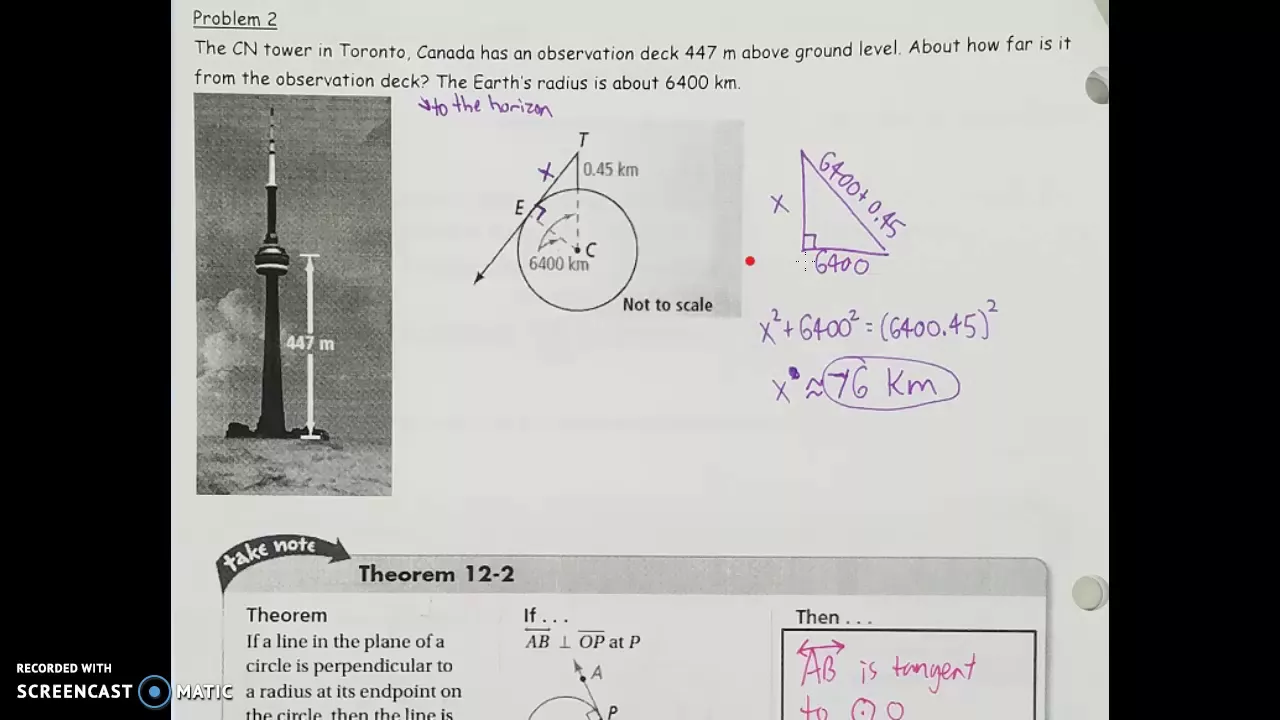 Problem 2
The CN tower in Toronto, Canada has an observation deck 447 m above ground level. About how far is it
from the observation deck? The Earth's radius is about 6400 km.
to the horizon
T
x
0.45 km
E
C
6400 km
Not to scale
447 m
x
6400+0.45
6400
x²+6400² = (6400.45)²
x ≈ 76 Km
take note
Theorem 12-2
Theorem
If a line in the plane of a
circle is perpendicular to
a radius at its endpoint on
the circle, then the line is
If . . .
AB ⊥ OP at P
A
P
Then . . .
AB is tangent
to ⊙ O
RECORDED WITH
SCREENCAST MATIC